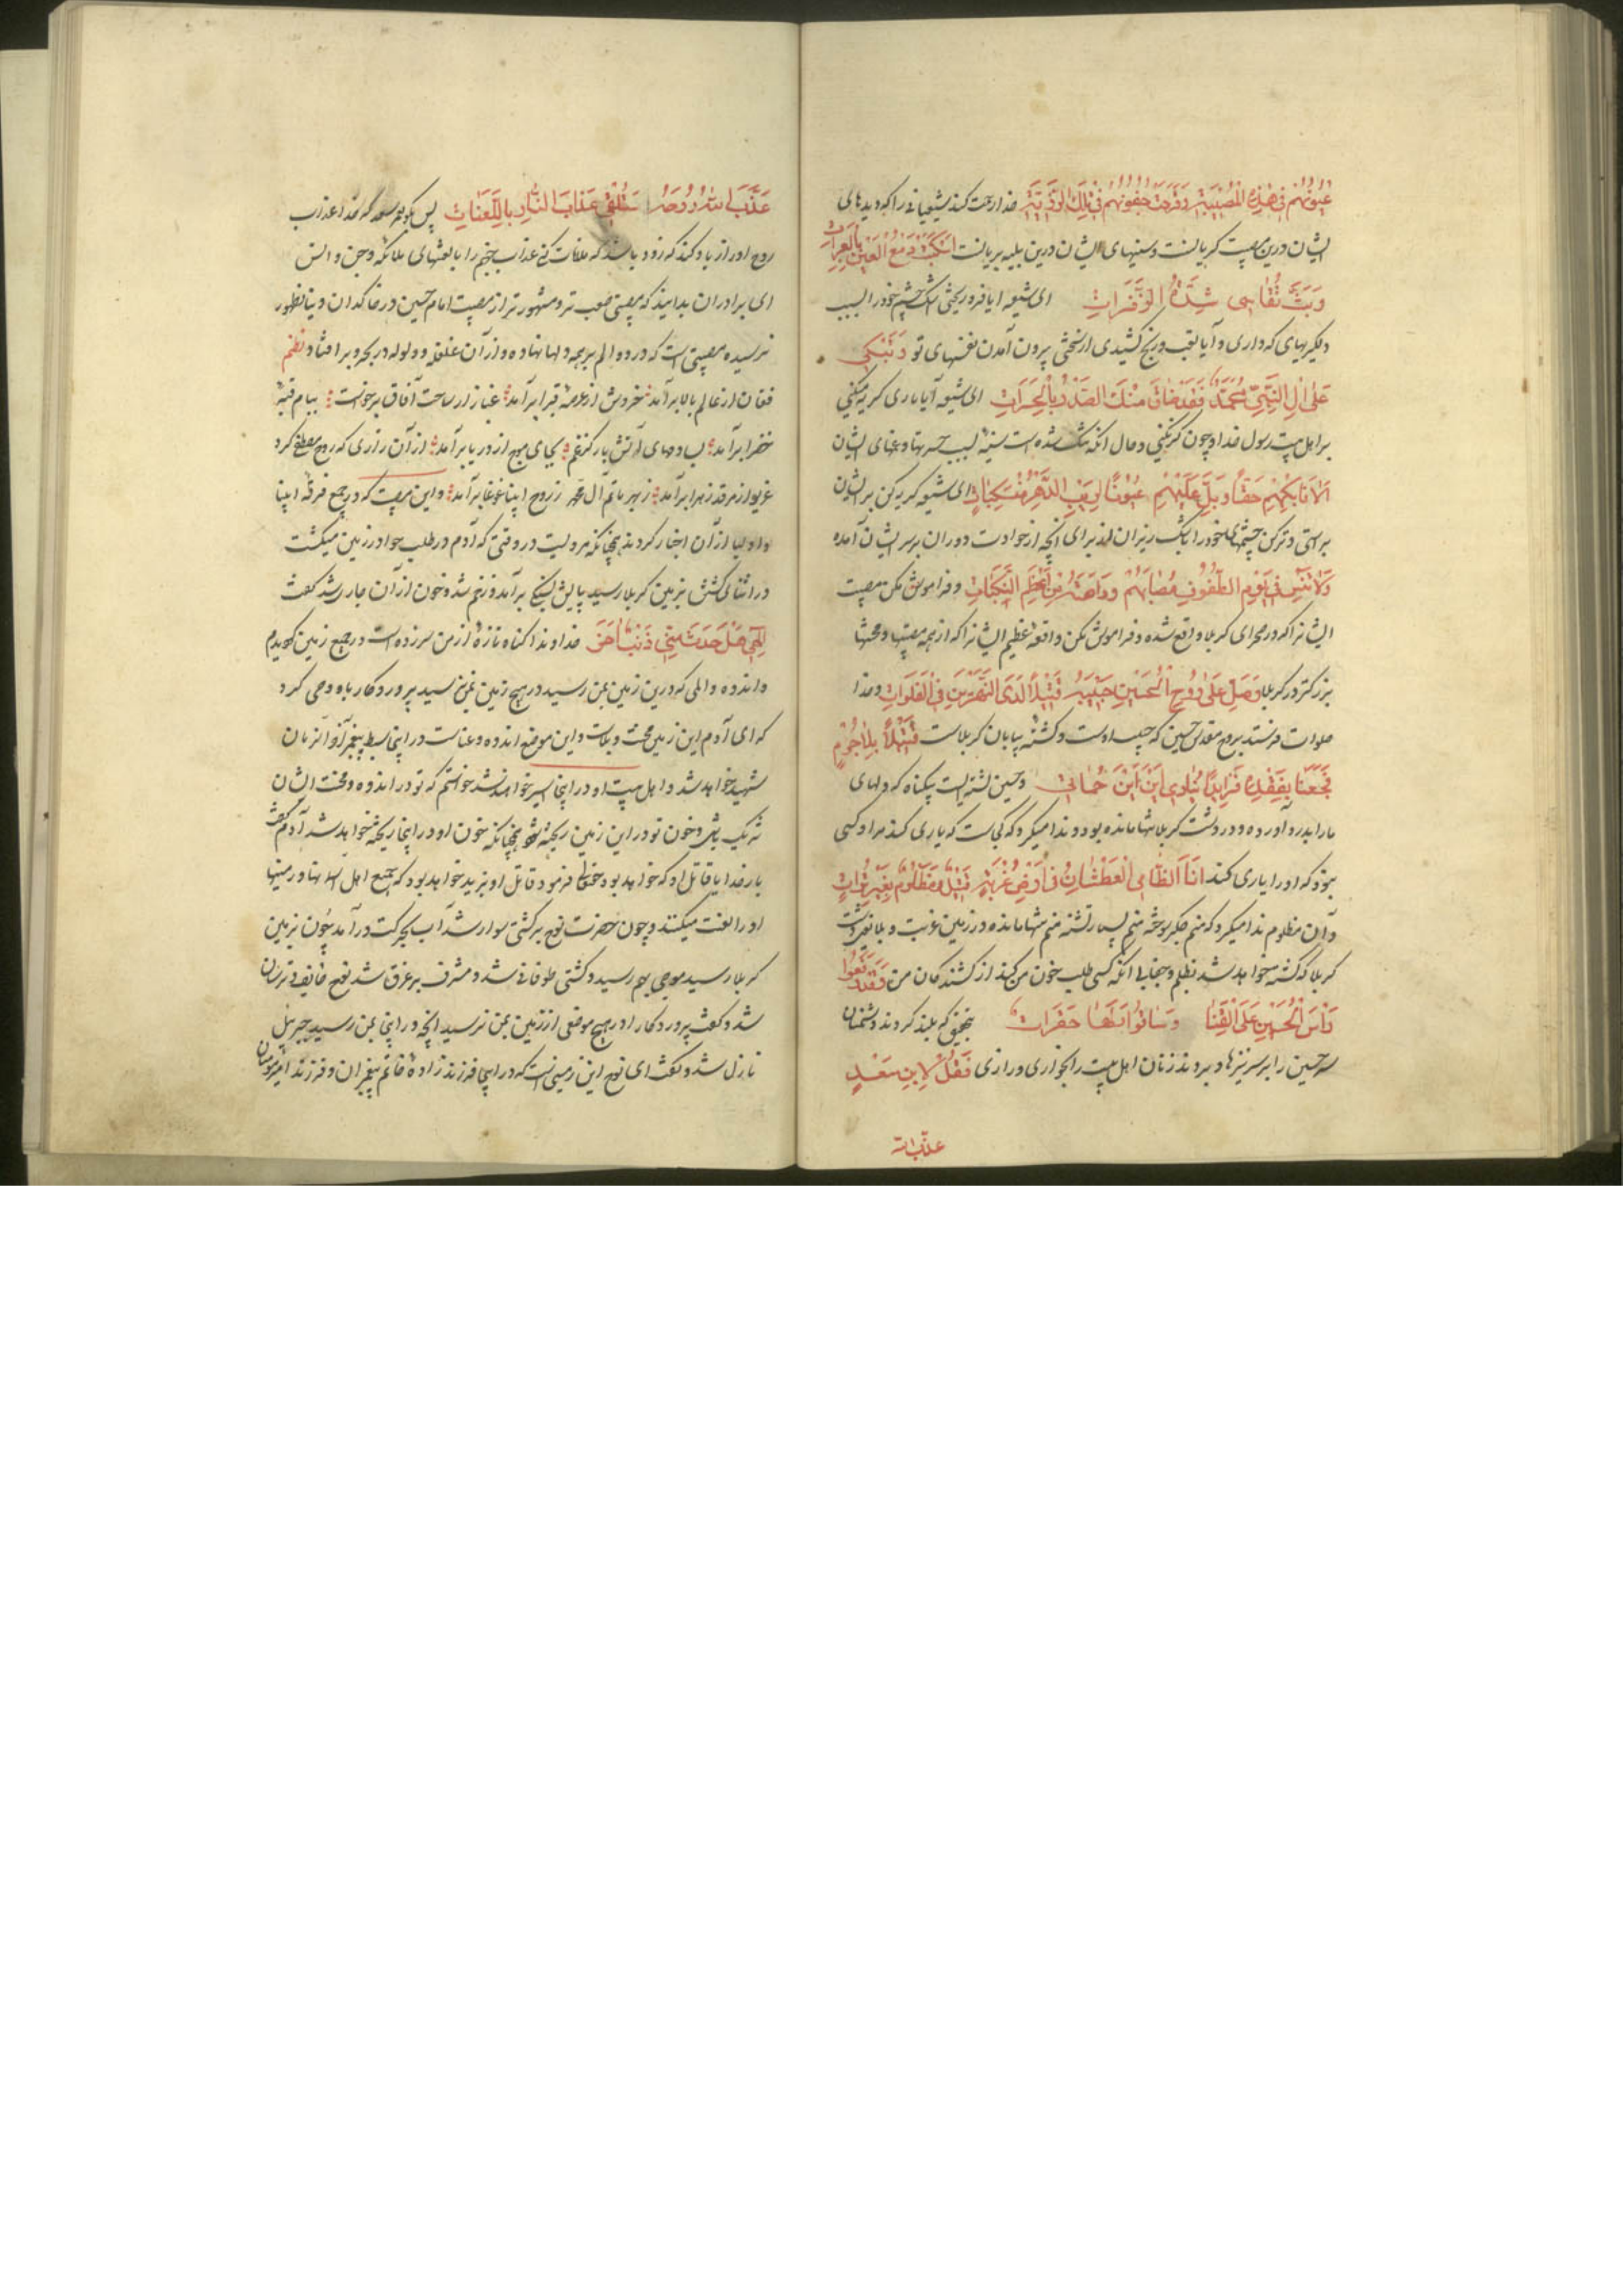 عیونهم فی هذه المصیبة وقرحت جفونهم فی تلک الرزیة خدا رحمت کند شیعیانی را که دیدهای
ایشان درین مصیبت گریانست و سینهای ایشان درین بلیه بریانست اسکبت دمع العین بالعبرات
وبت تقاسی شدة الزفرات ای شیعه ایا فرو ریختی اشک چشم خود را بسبب
دلگیریهای که داری و آیا تعب و رنج کشیدی از سختی بیرون آمدن نفسهای تو وتبکی
علی ال النبی محمد فقد ضاق منک الصدر بالحسرات ای شیعه آیا باری گریه میکنی
بر اهل بیت رسول خدا و چون گریه نکنی و حال آنکه تنگ شده است سینه بسبب حسرتها و غمهای ایشان
الا فابکهم حقا وبل علیهم عیونا لریب الدهر منسکبات ای شیعه گریه کن بر ایشان
براستی و تر کن چشمهای خود را که اشک ریزان اند برای آنچه از حوادث دوران بر سر ایشان آمده
ولا تنس فی یوم الطفوف مصابهم وداهیة من اعظم النکبات و فراموش مکن مصیبت
ایشانرا که در صحرای کربلا واقع شده و فراموش مکن واقعه عظیم ایشانرا که از همه مصیبتها و محنتها
بزرگتر در کربلا وصل علی روح الحسین حبیبه قتیلا لدی النهرین فی الفلوات و خدا
صلوات فرستد بر روح مقدس حسین که حبیب اوست و کشته بیابان کربلاست قتیلا بلا جرم
فجعنا بفقده فریدا ینادی این این حماتی و حسین کشته ایست بیگناه که دلهای
ما را بدرد آورده و در دشت کربلا تنها مانده بود و ندا میکرد که کجاست که یاری کند مرا و کسی
نبود که او را یاری کند انا الظامی العطشان فی ارض غربتی قتیل ومظلوم بغیر ترات
و آن مظلوم ندا میکرد که منم جگر سوخته منم بسیار تشنه منم تنها مانده در زمین غربت و بلا یعنی دشت
کربلا و کشته خواهد شد بظلم و جفا بی آنکه کسی طلب خون من کند از کشندگان من وقد رفعوا
راس الحسین علی القنا وساقوا نساءها حسرات بتحقیق که بلند کردند دشمنان
سر حسین را بر سر نیزها و بردند زنان اهل بیت را بخواری و زاری فقل لابن سعد
عذب الله
عذب الله روحه ستلقی عذاب النار باللعنات پس بگو بعمر سعد که خدا عذاب
روح او را زیاد کند که زود باشد که ملاقات کنی عذاب جهنم را با لعنتهای ملائکه و جن و انس
ای برادران بدانید که مصیبتی صعب تر و مشهور تر از مصیبت امام حسین در خاکدان دنیا بظهور
نرسیده مصیبتی است که درد و الم بر همه دلها نهاده و از آن غلغله و ولوله در بحر و بر افتاد نظم
فغان از عالم بالا برآمد خروش از عرصه غبرا برآمد غبار از ساحت آفاق برخواست ببام قبه
خضرا برآمد ... دمهای آتش بار کز غم بجای موج از دریا برآمد از آن زاری که روح مصطفی کرد
غریو از مرقد زهرا برآمد ز بهر ماتم آل محمد ز روح انبیا غوغا برآمد و این مصیبت که در جمیع فرقه انبیا
و اولیا از آن اخبار کردند چنانکه مرویست در وقتی که آدم در طلب حوا در زمین میگشت
در اثنای گشتن بزمین کربلا رسید پایش بسنگ برآمد و زخم شد و خون از آن جاری شد گفت
الهی هل حدث منی ذنب اخر خداوندا گناه تازه از من سر زده است در جمیع زمین گردیدم
و اندوه و المی که درین زمین بمن رسید در هیچ زمین بمن نرسید پروردگار باو وحی کرد
که ای آدم این زمین محنت و بلاست و این موضع اندوه و عناست در اینجا سبط پیغمبر آخر الزمان
شهید خواهد شد و اهل بیت او در اینجا اسیر خواهند شد خواستم که تو در اندوه و محنت ایشان
شریک باشی و خون تو در این زمین ریخته شود چنانکه خون او در اینجا ریخته خواهد شد آدم گفت
بار خدایا قاتل او که خواهد بود حقتعالی فرمود قاتل او یزید خواهد بود که جمیع اهل اسمانها و زمینها
او را لعنت میکنند و چون حضرت نوح بر کشتی سوار شد آب بحرکت درآمد چون بزمین
کربلا رسید موجی بهم رسید و کشتی طوفانی شد و مشرف بر غرق شد نوح خایف و ترسان
شد و گفت پروردگارا در هیچ موضعی از زمین بمن نرسید آنچه در اینجا بمن رسید جبرئیل
نازل شد و گفت ای نوح این زمینی است که در اینجا فرزندزاده خاتم پیغمبران و فرزند امیر مومنان